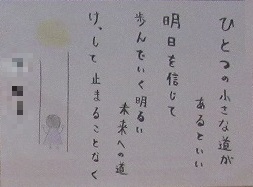 ひとつの小さな道が
あるといい
明日を信じて
歩んでいく明るい
未来への道
けして止まることなく